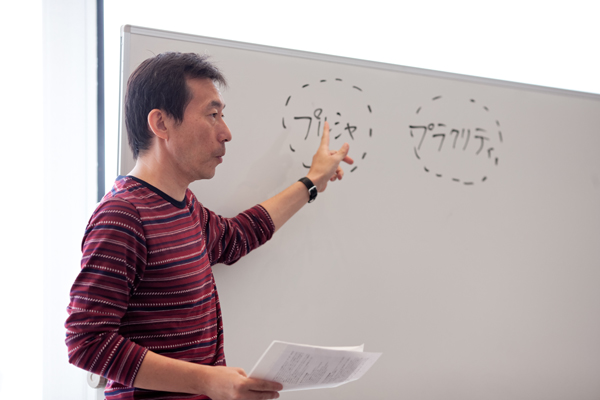 プルシャ
プラクリティ